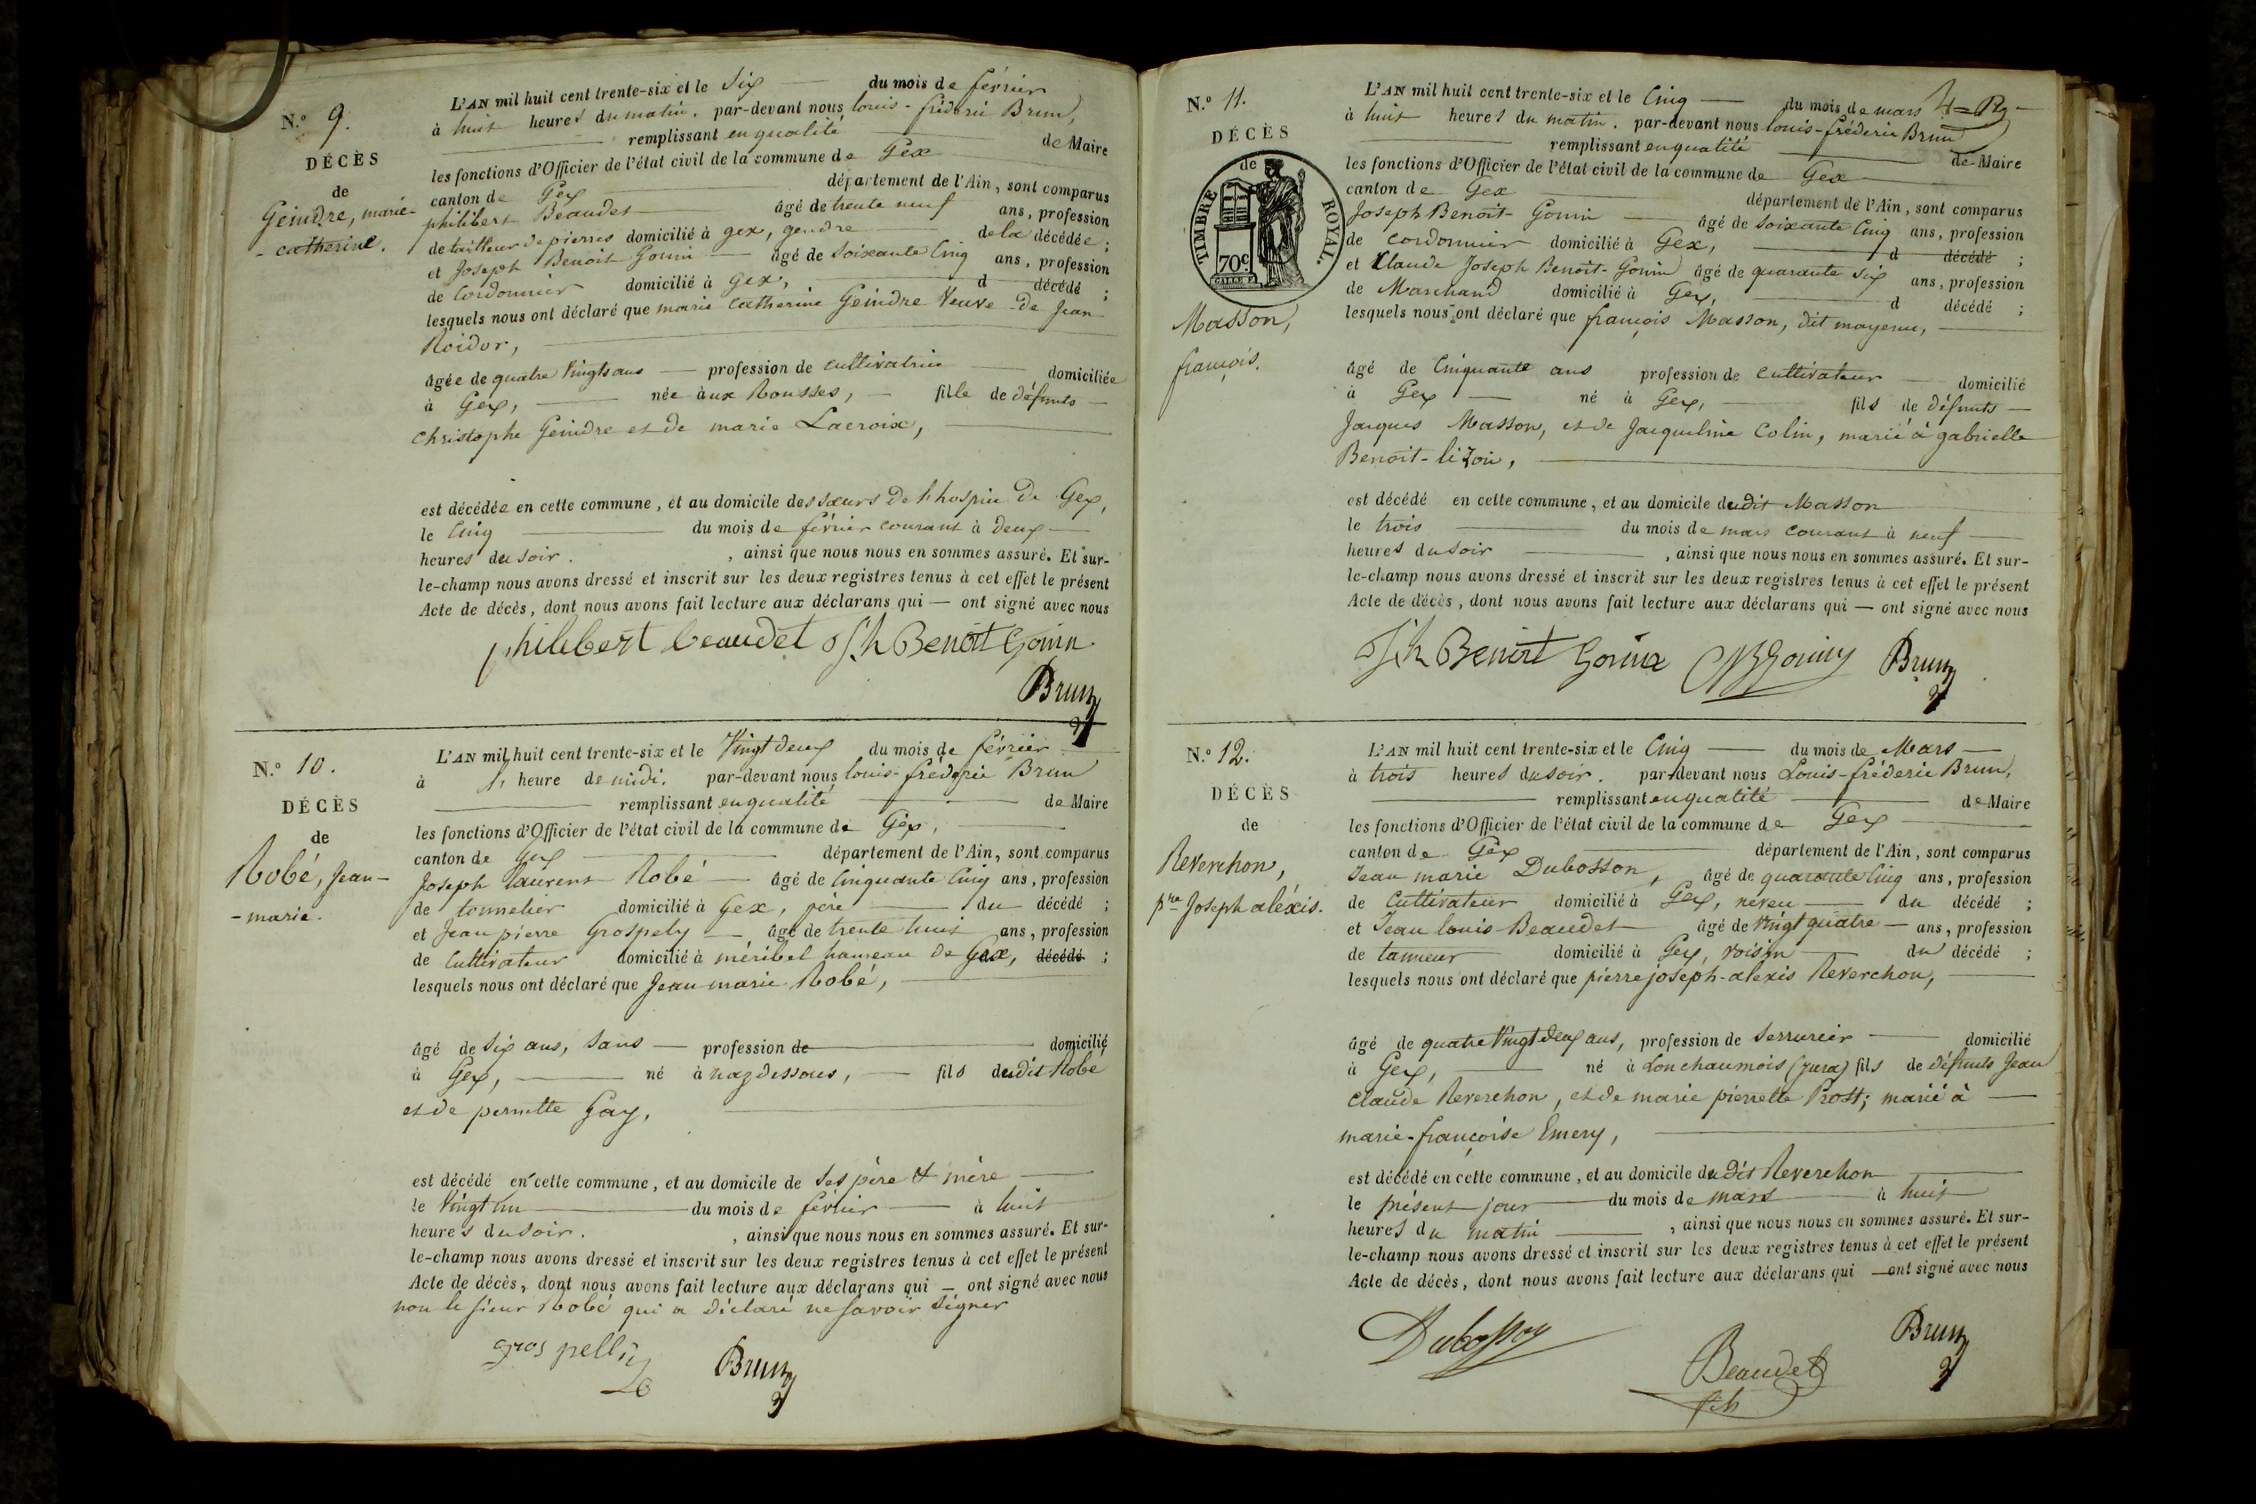 N.° 9.
DÉCÈS
de
Geindre, marie-
-catherine.
L'AN mil huit cent trente-six et le Six du mois de février
à huit heures du matin. par-devant nous louis-fréderic Brun,
remplissant en qualité de Maire
les fonctions d'Officier de l'état civil de la commune de Gex
canton de Gex département de l'Ain, sont comparus
philibert Beaudet âgé de trente neuf ans, profession
de tailleur de pierres domicilié à gex, gendre de la décédée ;
et Joseph Benoit Gonin âgé de Soixante Cinq ans, profession
de Cordonnier domicilié à gex, d décédé ;
lesquels nous ont déclaré que marie Catherine Geindre Veuve de Jean
Roidor,
âgée de quatre Vingts ans profession de cultivatrice domiciliée
à Gex, née aux Rousses, fille de défunts
christophe Geindre et de marie Lacroix,
est décédée en cette commune, et au domicile des sœurs de l'hospice de Gex,
le Cinq du mois de février courant à deux
heures du soir. , ainsi que nous nous en sommes assuré. Et sur-
le-champ nous avons dressé et inscrit sur les deux registres tenus à cet effet le présent
Acte de décès, dont nous avons fait lecture aux déclarans qui — ont signé avec nous
philibert beaudet Jh Benoit Gonin
Brun
N.° 10.
DÉCÈS
de
Robé, Jean-
-marie.
L'AN mil huit cent trente-six et le Vingt deux du mois de février
à heure de midi. par-devant nous louis-fréderic Brun
remplissant en qualité de Maire
les fonctions d'Officier de l'état civil de la commune de Gex,
canton de Gex département de l'Ain, sont comparus
Joseph laurent Robé âgé de Cinquante Cinq ans, profession
de tonnelier domicilié à Gex, père du décédé ;
et Jean pierre Grospely âgé de trente huit ans, profession
de Cultivateur domicilié à méribel hameau de gex, décédé ;
lesquels nous ont déclaré que Jean marie Robé,
âgé de Six ans, Sans profession de domicilié
à Gex, né à nazdessous, fils dudit Robé
et de pernette Gay,
est décédé en cette commune, et au domicile de Ses père & mère
le Vingt un du mois de février à huit
heures du soir. , ainsi que nous nous en sommes assuré. Et sur-
le-champ nous avons dressé et inscrit sur les deux registres tenus à cet effet le présent
Acte de décès, dont nous avons fait lecture aux déclarans qui — ont signé avec nous
non le sieur Robé qui a déclaré ne savoir signer
Brun
N.° 11.
DÉCÈS
de
TIMBRE ROYAL.
70c
Masson,
françois.
L'AN mil huit cent trente-six et le Cinq du mois de mars
à huit heures du matin. par-devant nous louis-fréderic Brun
remplissant en qualité de Maire
les fonctions d'Officier de l'état civil de la commune de Gex
canton de Gex département de l'Ain, sont comparus
Joseph Benoit-Gonin âgé de soixante Cinq ans, profession
de cordonnier domicilié à Gex, d décédé ;
et Claude Joseph Benoit-Gonin âgé de quarante six ans, profession
de Marchand domicilié à Gex, d décédé ;
lesquels nous ont déclaré que françois Masson, dit mayenu,
âgé de Cinquante ans profession de cultivateur domicilié
à Gex né à Gex, fils de défunts
Jacques Masson, et de Jacqueline Colin, marié à gabrielle
Benoit-lizon,
est décédé en cette commune, et au domicile dudit Masson
le trois du mois de mars courant à neuf
heures du soir , ainsi que nous nous en sommes assuré. Et sur-
le-champ nous avons dressé et inscrit sur les deux registres tenus à cet effet le présent
Acte de décès, dont nous avons fait lecture aux déclarans qui — ont signé avec nous
Jh Benoit Gonin CJBGonin Brun
N.° 12.
DÉCÈS
de
Reverchon,
pre Joseph aléxis.
L'AN mil huit cent trente-six et le Cinq du mois de Mars
à trois heures du soir. par-devant nous Louis-fréderic Brun,
remplissant en qualité de Maire
les fonctions d'Officier de l'état civil de la commune de Gex
canton de Gex département de l'Ain, sont comparus
Jean marie Dubosson, âgé de quarante Cinq ans, profession
de Cultivateur domicilié à Gex, neveu du décédé ;
et Jean louis Beaudet âgé de Vingt quatre ans, profession
de tanneur domicilié à Gex, voisin du décédé ;
lesquels nous ont déclaré que pierre joseph-alexis Reverchon,
âgé de quatre Vingt deux ans, profession de Serrurier domicilié
à Gex, né à Lonchaumois (Jura) fils de défunts Jean
Claude Reverchon, et de marie pierrette Prost; marié à
marie-françoise Emery,
est décédé en cette commune, et au domicile dudit Reverchon
le présent jour du mois de mars à huit
heures du matin , ainsi que nous nous en sommes assuré. Et sur-
le-champ nous avons dressé et inscrit sur les deux registres tenus à cet effet le présent
Acte de décès, dont nous avons fait lecture aux déclarans qui — ont signé avec nous
Dubosson
Beaudet
Brun